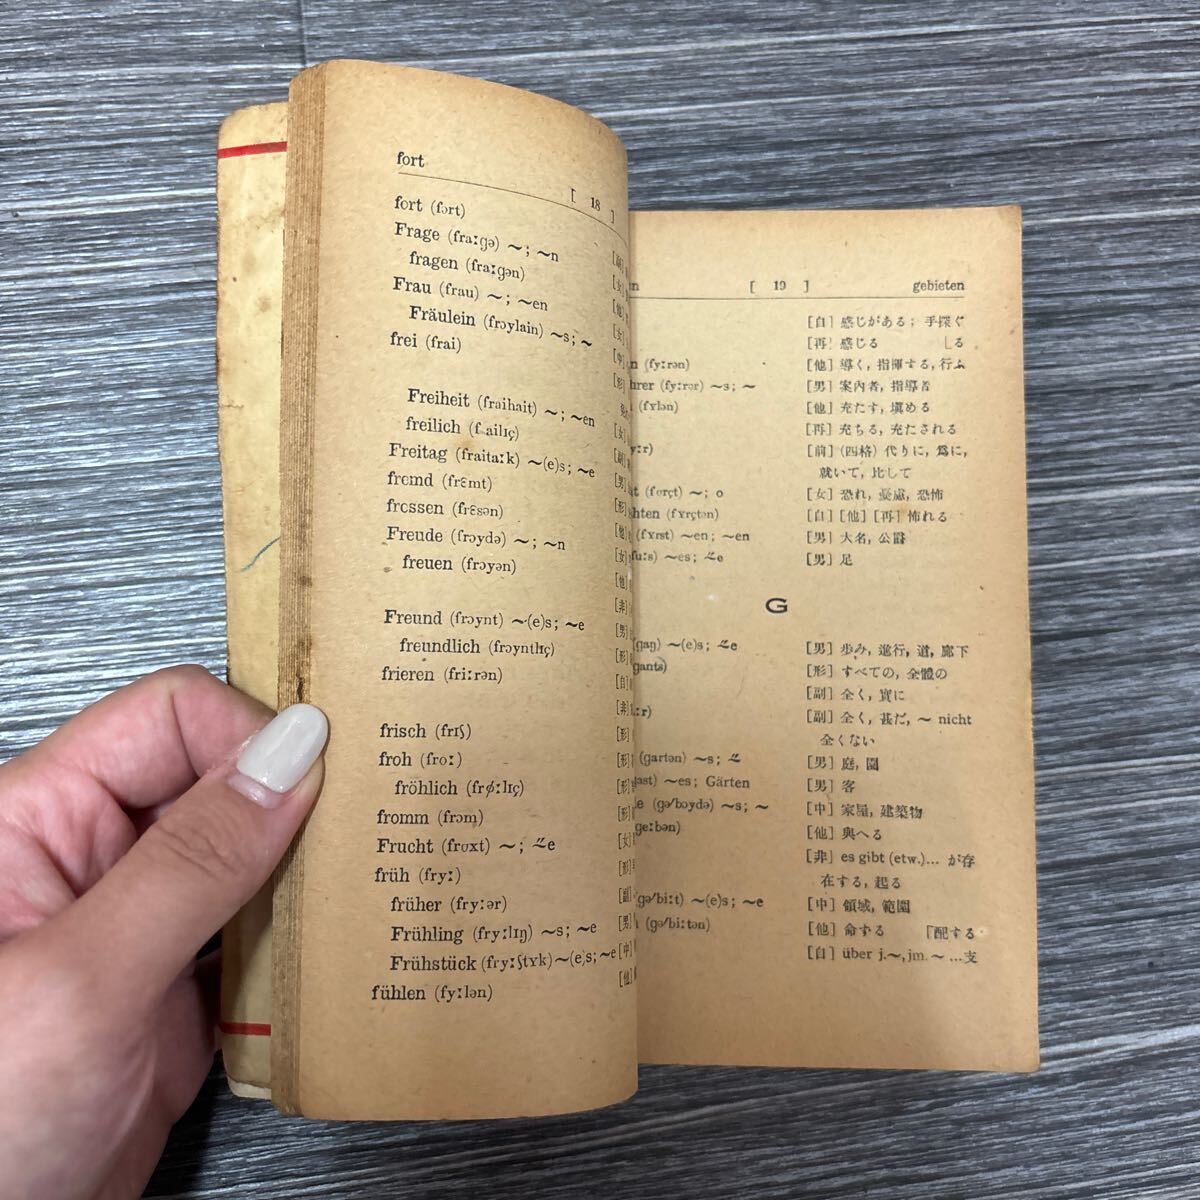 fort
[ 18 ]
fort (fɔrt)
Frage (fraːgə) ～; ～n
fragen (fraːgən)
Frau (frau) ～; ～en
Fräulein (frɔylain) ～s; ～
frei (frai)
Freiheit (fraihait) ～; ～en
freilich (frailıç)
Freitag (fraitaːk) ～(e)s; ～e
fremd (frɛmt)
fressen (frɛsən)
Freude (frɔydə) ～; ～n
freuen (frɔyən)
Freund (frɔynt) ～(e)s; ～e
freundlich (frɔyntlıç)
frieren (friːrən)
frisch (frıʃ)
froh (froː)
fröhlich (frøːlıç)
fromm (frɔm)
Frucht (frʊxt) ～; ～̈e
früh (fryː)
früher (fryːər)
Frühling (fryːlıŋ) ～s; ～e
Frühstück (fryːʃtʏk) ～(e)s; ～e
fühlen (fyːlən)
[女]
[他]
[女]
[中]
[形]
[女]
[副]
[男]
[形]
[他]
[女]
[他]
[非]
[男]
[形]
[自]
[非]
[形]
[形]
[形]
[形]
[女]
[形]
[副]
[男]
[中]
[他]
[ 19 ] gebieten
[自] 感じがある; 手探ぐ
[再] 感じる ⌊る
(fyːrən) [他] 導く, 指揮する, 行ふ
hrer (fyːrər) ～s; ～ [男] 案內者, 指導者
(fʏlən) [他] 充たす, 塡める
[再] 充ちる, 充たされる
[前] (四格) 代りに, 爲に,
就いて, 比して
(fʊrçt) ～; o [女] 恐れ, 憂慮, 恐怖
hten (fʏrçtən) [自] [他] [再] 怖れる
(fʏrst) ～en; ～en [男] 大名, 公爵
fuːs) ～es; ～̈e [男] 足
G
(gaŋ) ～(e)s; ～̈e [男] 歩み, 進行, 道, 廊下
gants) [形] すべての, 全體の
[副] 全く, 實に
[副] 全く, 甚だ, ～ nicht
全くない
(gartən) ～s; ～̈ [男] 庭, 園
gast) ～es; Gärten [男] 客
de (gə/bɔydə) ～s; ～ [中] 家屋, 建築物
geːbən) [他] 與へる
[非] es gibt (etw.)... が存
在する, 起る
(gə/biːt) ～(e)s; ～e [中] 領域, 範圍
(gə/biːtən) [他] 命ずる ⌈配する
[自] über j.～, jm. ～ ...支